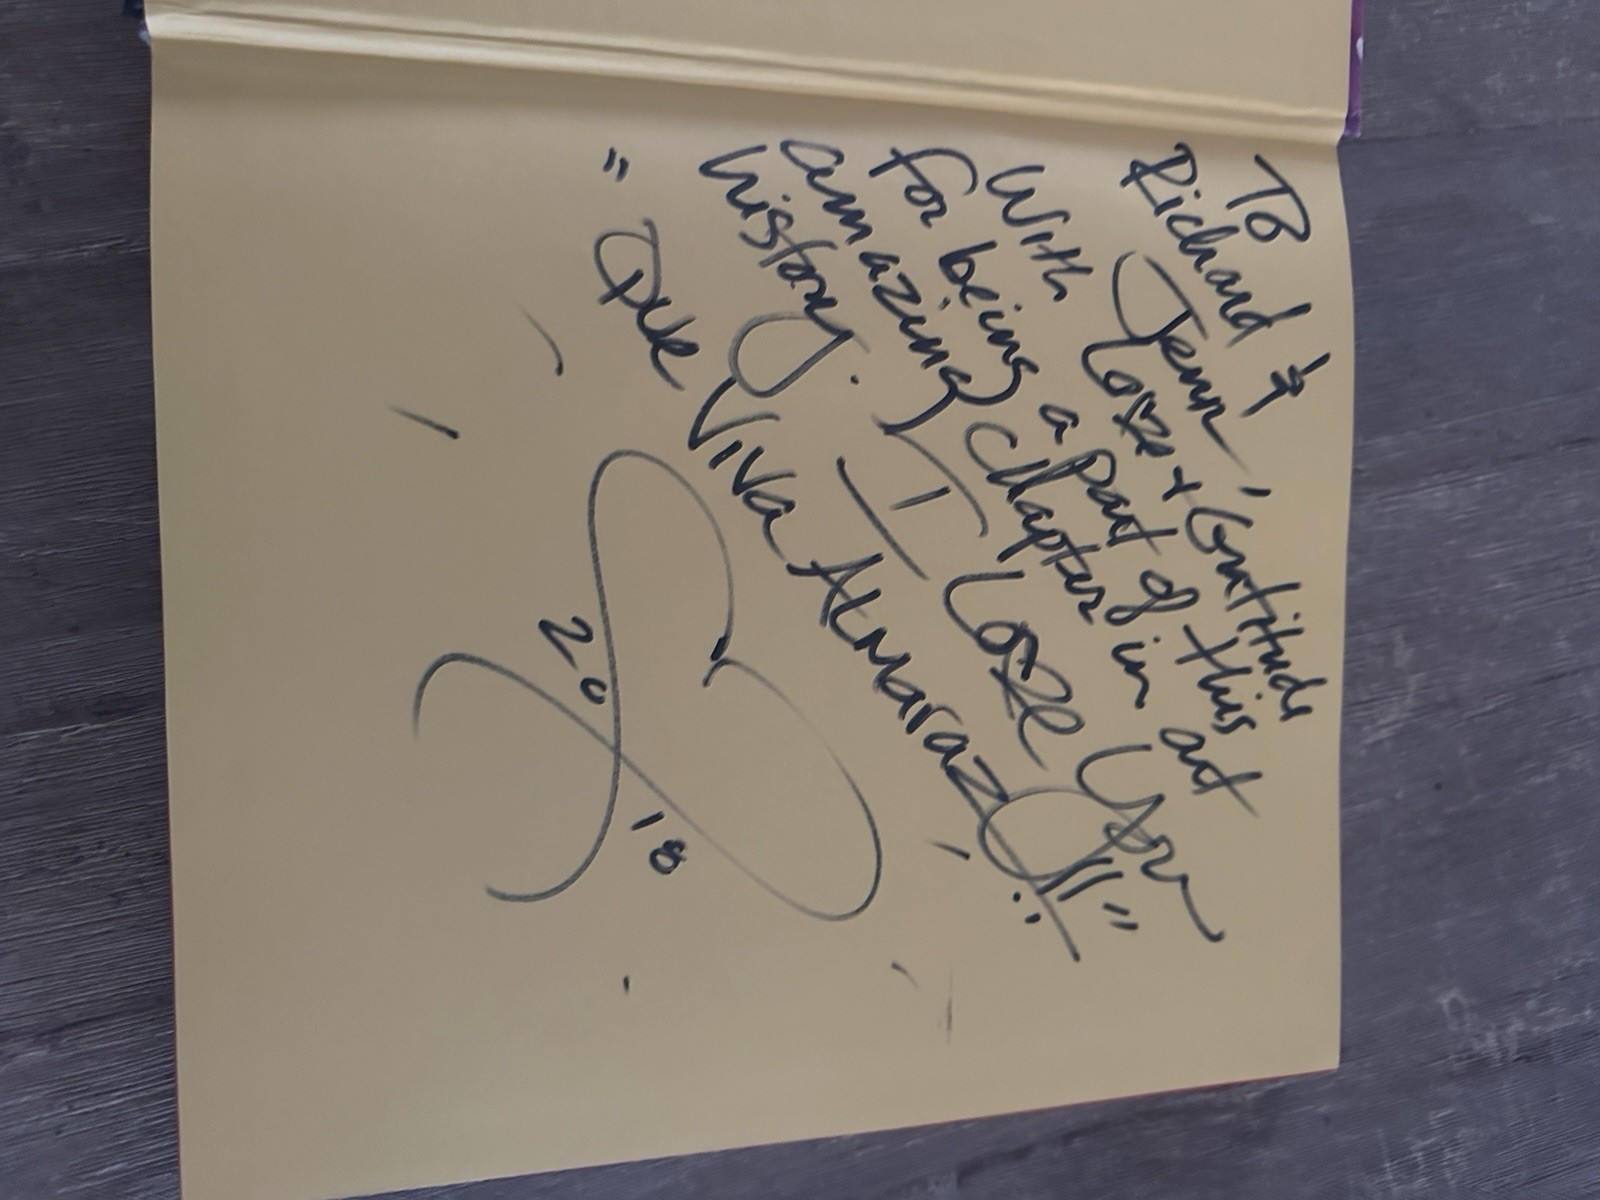 To
Richard &
Jenn,
With Love + Gratitude
for being a part of this
amazing chapter in art
history. I Love You
" Que Viva Almaraz!! "
2018